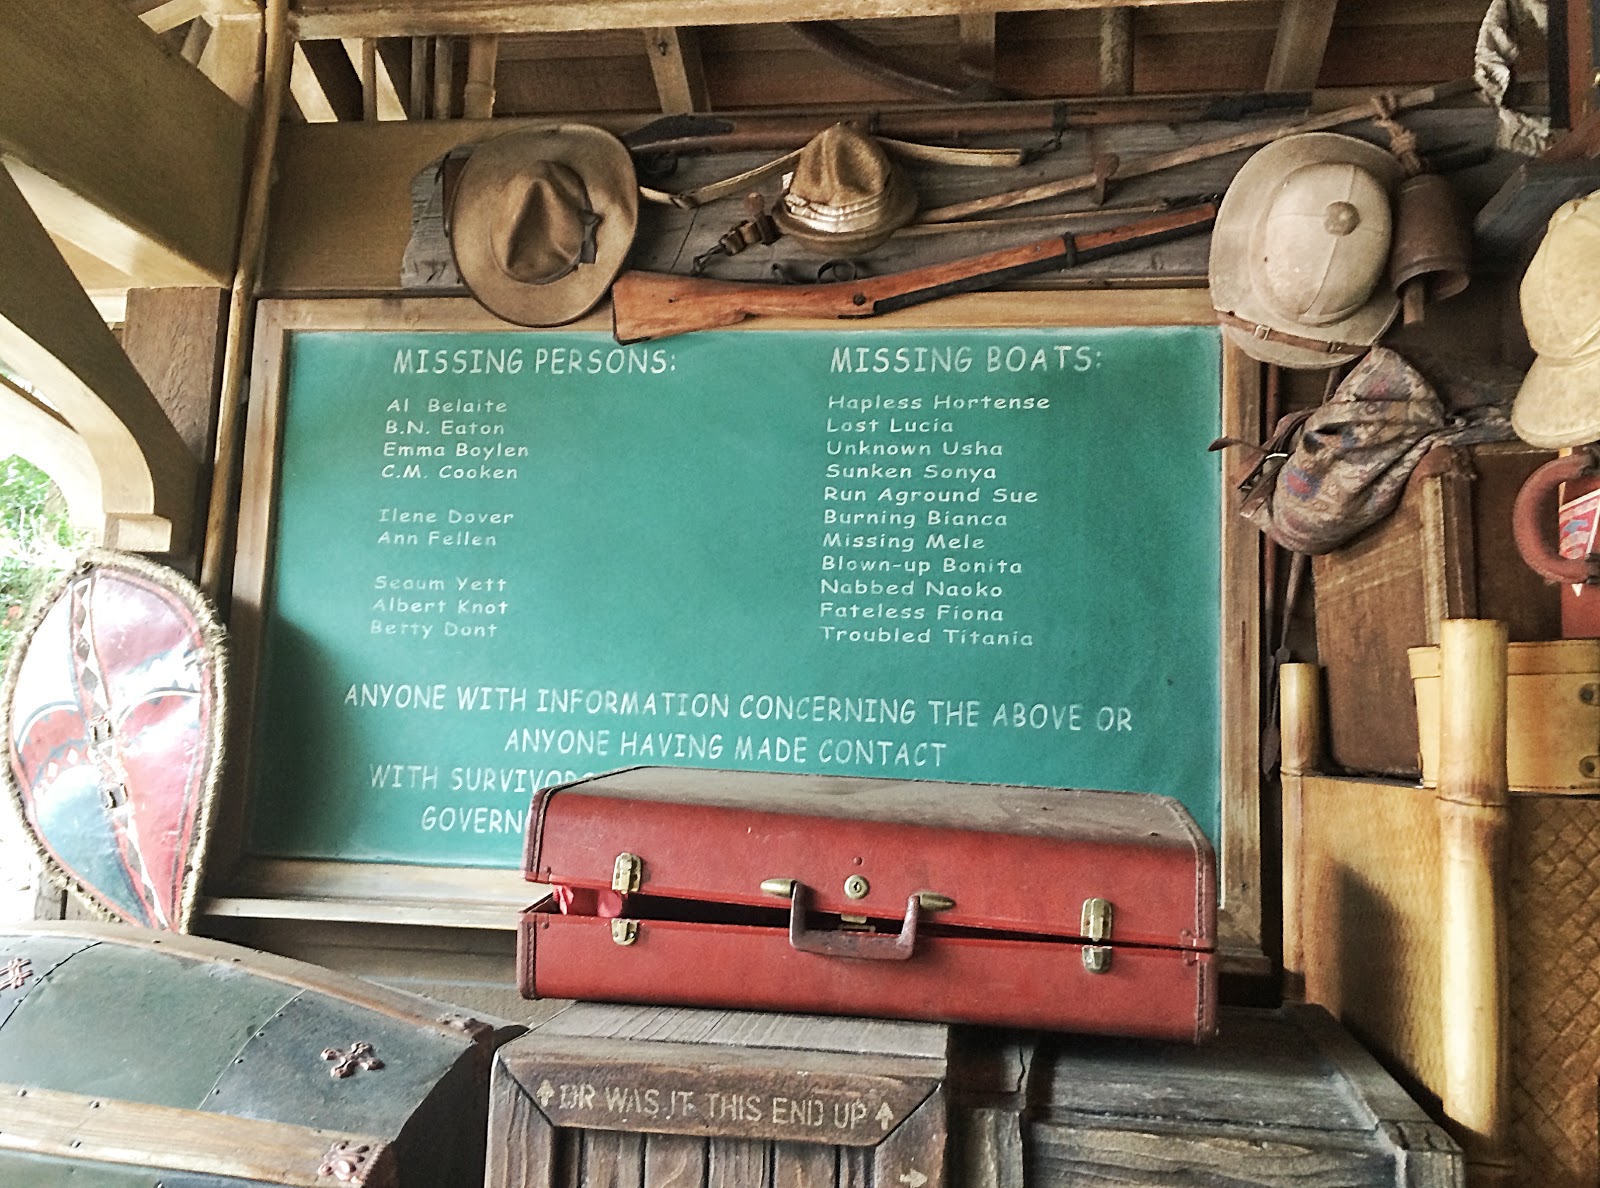 MISSING PERSONS:
Al Belaite
B.N. Eaton
Emma Boylen
C.M. Cooken
Ilene Dover
Ann Fellen
Seaum Yett
Albert Knot
Betty Dont
MISSING BOATS:
Hapless Hortense
Lost Lucia
Unknown Usha
Sunken Sonya
Run Aground Sue
Burning Bianca
Missing Mele
Blown-up Bonita
Nabbed Naoko
Fateless Fiona
Troubled Titania
ANYONE WITH INFORMATION CONCERNING THE ABOVE OR
ANYONE HAVING MADE CONTACT
WITH
OR WAS IT THIS END UP